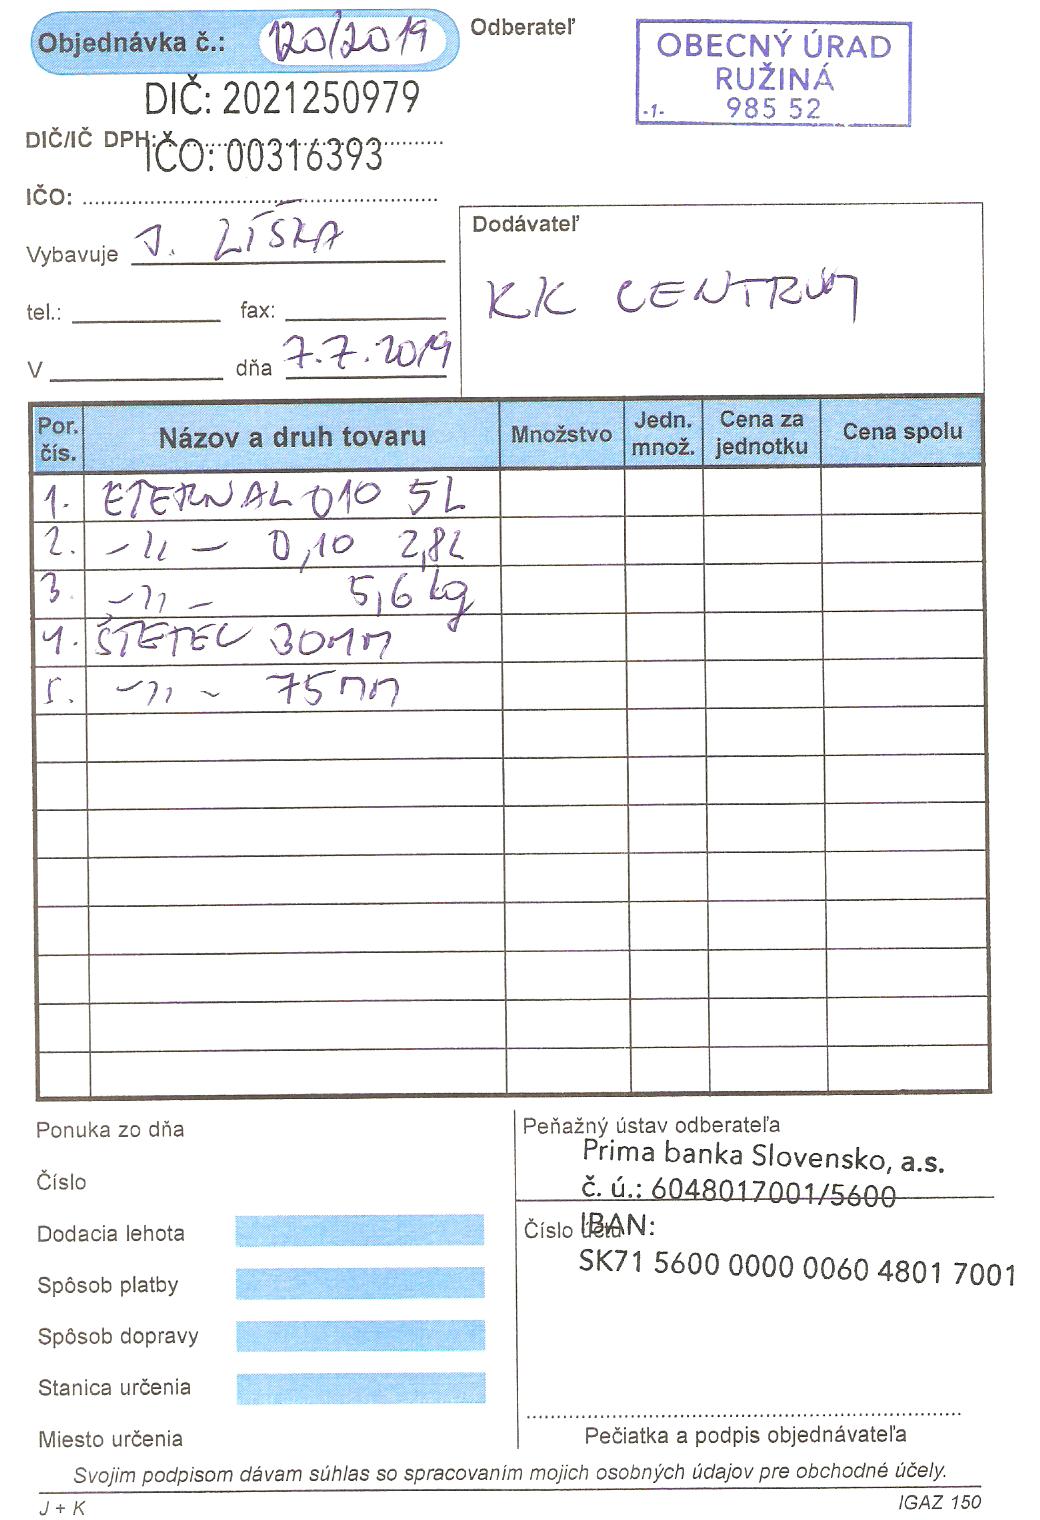 Objednávka č.: 120/2019
Odberateľ
OBECNÝ ÚRAD
RUŽINÁ
-1- 985 52
DIČ: 2021250979
DIČ/IČ DPH:
IČO: 00316393
IČO:
Vybavuje J. LÍŠKA
Dodávateľ
KK CENTRUM
tel.: fax:
V dňa 7.7.2019
Por. čís. Názov a druh tovaru Množstvo Jedn. množ. Cena za jednotku Cena spolu
1. ETERNAL 010 5L
2. -"- 0,10 2,8L
3. -"- 5,6 kg
4. ŠTETEC 30MM
5. -"- 75MM
Ponuka zo dňa
Číslo
Dodacia lehota
Spôsob platby
Spôsob dopravy
Stanica určenia
Miesto určenia
Peňažný ústav odberateľa
Prima banka Slovensko, a.s.
č. ú.: 6048017001/5600
Číslo účtu
IBAN:
SK71 5600 0000 0060 4801 7001
Pečiatka a podpis objednávateľa
Svojim podpisom dávam súhlas so spracovaním mojich osobných údajov pre obchodné účely.
J + K
IGAZ 150